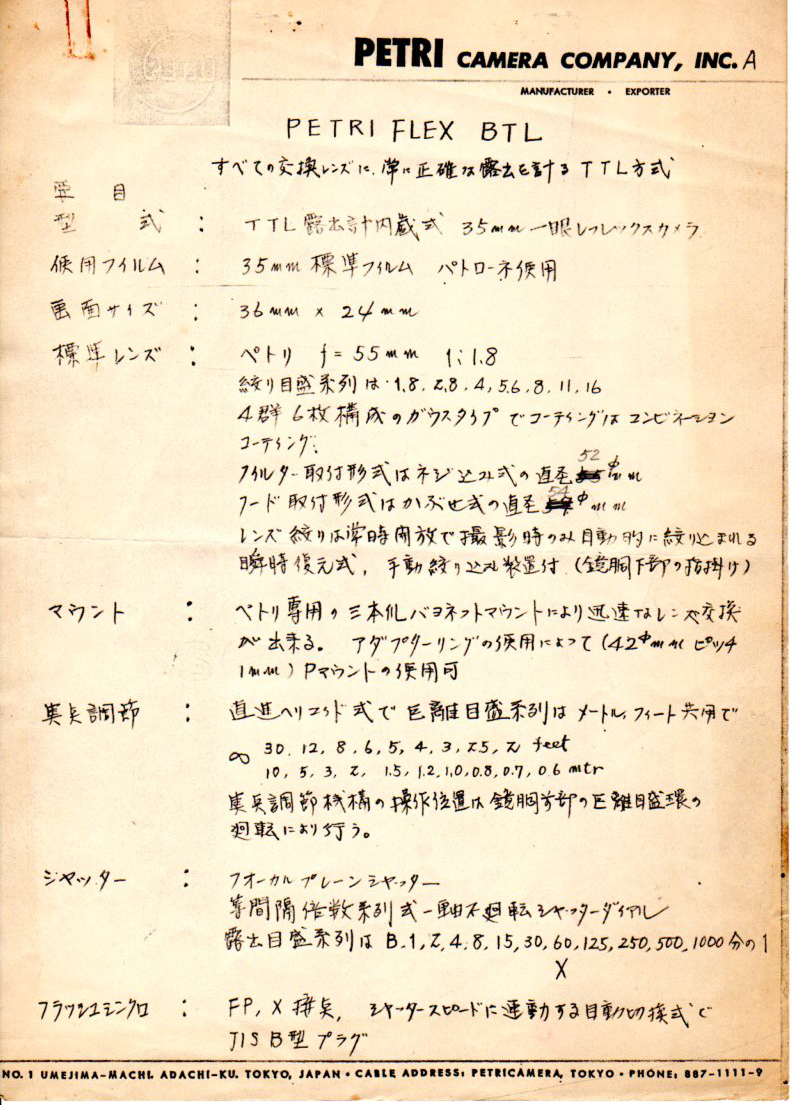 PETRI CAMERA COMPANY, INC. A
MANUFACTURER • EXPORTER
PETRI FLEX BTL
すべての交換レンズに、常に正確な露出を計る TTL方式
要目
型式 : TTL露出計内蔵式 35mm一眼レフレックスカメラ
使用フイルム : 35mm標準フイルム パトローネ使用
画面サイズ : 36mm × 24mm
標準レンズ : ペトリ f=55mm 1:1.8
絞り目盛系列は 1.8, 2.8, 4, 5.6, 8, 11, 16
4群6枚構成のガウスタイプでコーティングはコンビネーション
コーティング.
フイルター取付形式はネジ込み式の直径 52φmm
フード取付形式はかぶせ式の直径 54φmm
レンズ絞りは常時開放で撮影時のみ自動的に絞り込まれる
瞬時復元式, 手動絞り込み装置付 (鏡胴下部の指掛け)
マウント : ペトリ専用の三本爪バヨネットマウントにより迅速なレンズ交換
が出来る。 アダプターリングの使用によって (42φmm ピッチ
1mm) Pマウントの使用可
焦点調節 : 直進ヘリコイド式で距離目盛系列はメートル, フィート共用で
∞ 30, 12, 8, 6, 5, 4, 3, 2.5, 2 feet
10, 5, 3, 2, 1.5, 1.2, 1.0, 0.8, 0.7, 0.6 mtr
焦点調節機構の操作位置は鏡胴前部の距離目盛環の
廻転により行う。
シャッター : フオーカルプレーンシャッター
等間隔倍数系列式一軸不廻転シャッターダイアル
露出目盛系列は B, 1, 2, 4, 8, 15, 30, 60, 125, 250, 500, 1000 分の1
X
フラッシュシンクロ : FP, X 接点, シャッタースピードに連動する自動切換式で
JIS B型プラグ
NO. 1 UMEJIMA-MACHI, ADACHI-KU, TOKYO, JAPAN • CABLE ADDRESS: PETRICAMERA, TOKYO • PHONE: 887-1111-9